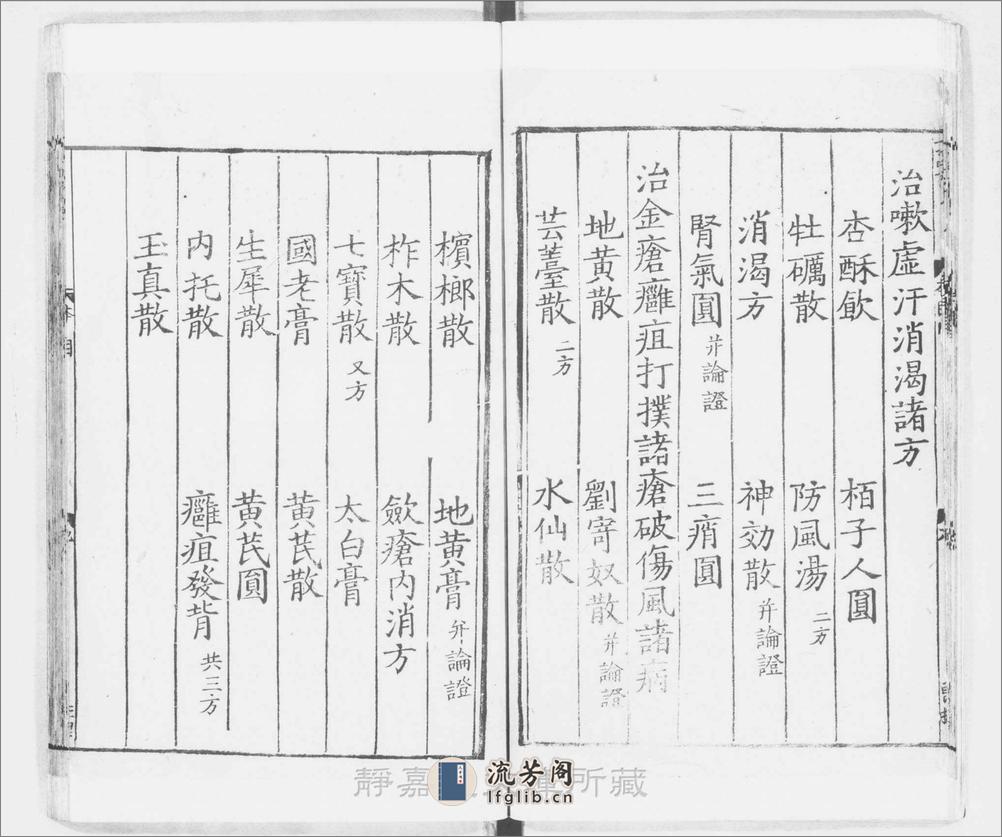 治嗽虛汗消渴諸方
杏酥飲 栢子人圓
牡礪散 防風湯 二方
消渴方 神効散 并論證
腎氣圓 并論證 三痟圓
治金瘡癰疽打撲諸瘡破傷風諸病
地黃散 劉寄奴散 并論證
芸薹散 二方 水仙散
檳榔散 地黃膏 并論證
柞木散 斂瘡內消方
七寶散 又方 太白膏
國老膏 黃芪散
生犀散 黃芪圓
內托散 癰疽發背 共三方
玉真散
靜嘉 所藏
流芳阁
lfglib.cn